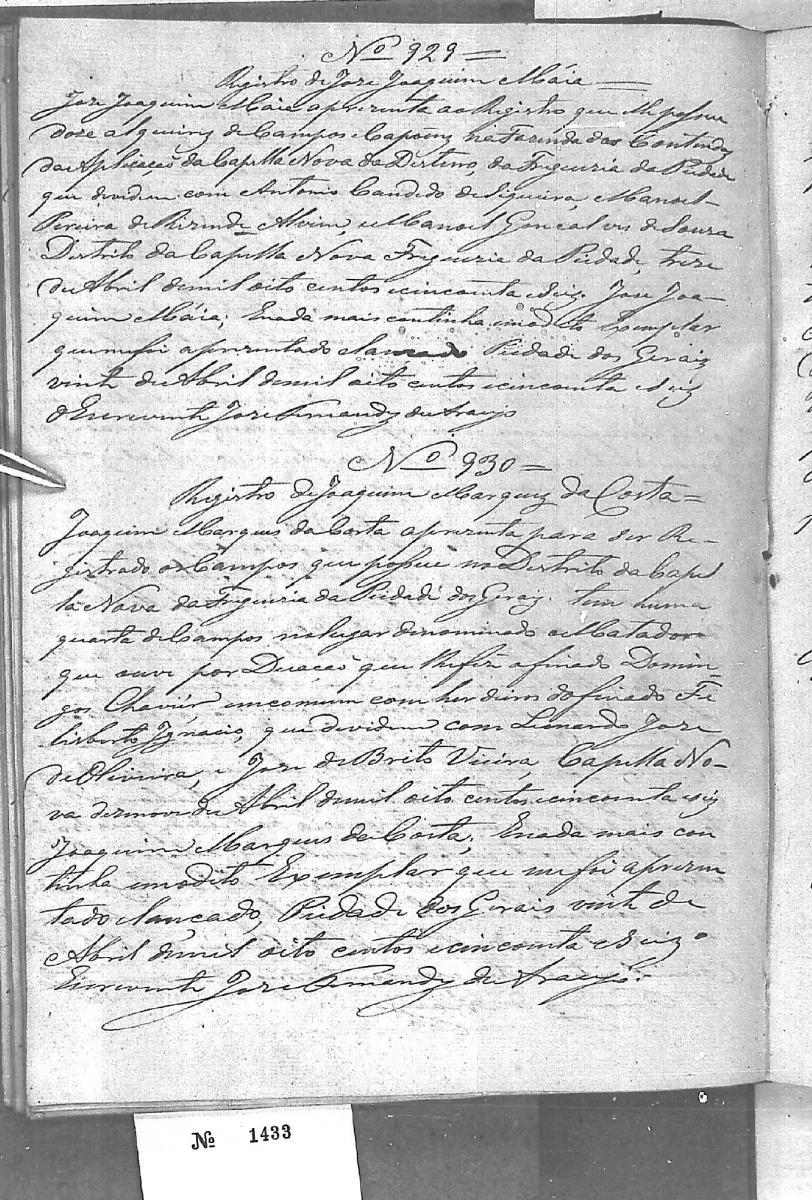 Nº 929 =
Registro de Joze Joaquim Máia
Joze Joaquim Máia aprezenta ao Registro que elle possue
doze alqueires de Campos e Capoens na Fazenda das Contendas
da Aplicação da Capella Nova do Desterro, da Freguezia da Piedade
que dividem com Antonio Candido de Siqueira, Manoel
Pereira de Rizende Alvim, e Manoel Goncalves de Souza
Destrito da Capella Nova Freguezia da Piedade, treze
de Abril de mil oito centos e cincoenta e seiz. Jose Joa-
quim Máia; Enada mais continha em o dito Exemplar
que me foi aprezentado e lancado Piedade dos Geraiz
vinte de Abril de mil oito centos e cincoenta e seiz
O Escrevente Joze Fernandz de Araujo
Nº 930 =
Registro de Joaquim Marquez da Costa =
Joaquim Marques da Costa aprezenta para ser Re-
gistrado os Campos que possue no Destrito da Capel
la Nova da Freguezia da Piedade dos Geraiz. tem huma
quarta de Campos no lugar denominado o Matador
que ouve por Duação que lhe fez o finado Domin-
gos Chavier em comum com herdeiros do finado Fe
lisberto Ignacio, que dividem com Leonardo Joze
de Oliveira, e Joze de Brito Vieira, Capella No-
va dezanove de Abril de mil oito centos e cincoenta e seiz
Joaquim Marques da Costa; Enada mais con
tinha em o dito Exemplar que me foi aprezen
tado e lancado, Piedade dos Gerais vinte de
Abril de mil oito centos e cincoenta e seiz o
Escrevente Joze Fernandz de Araujo.
Nº 1433